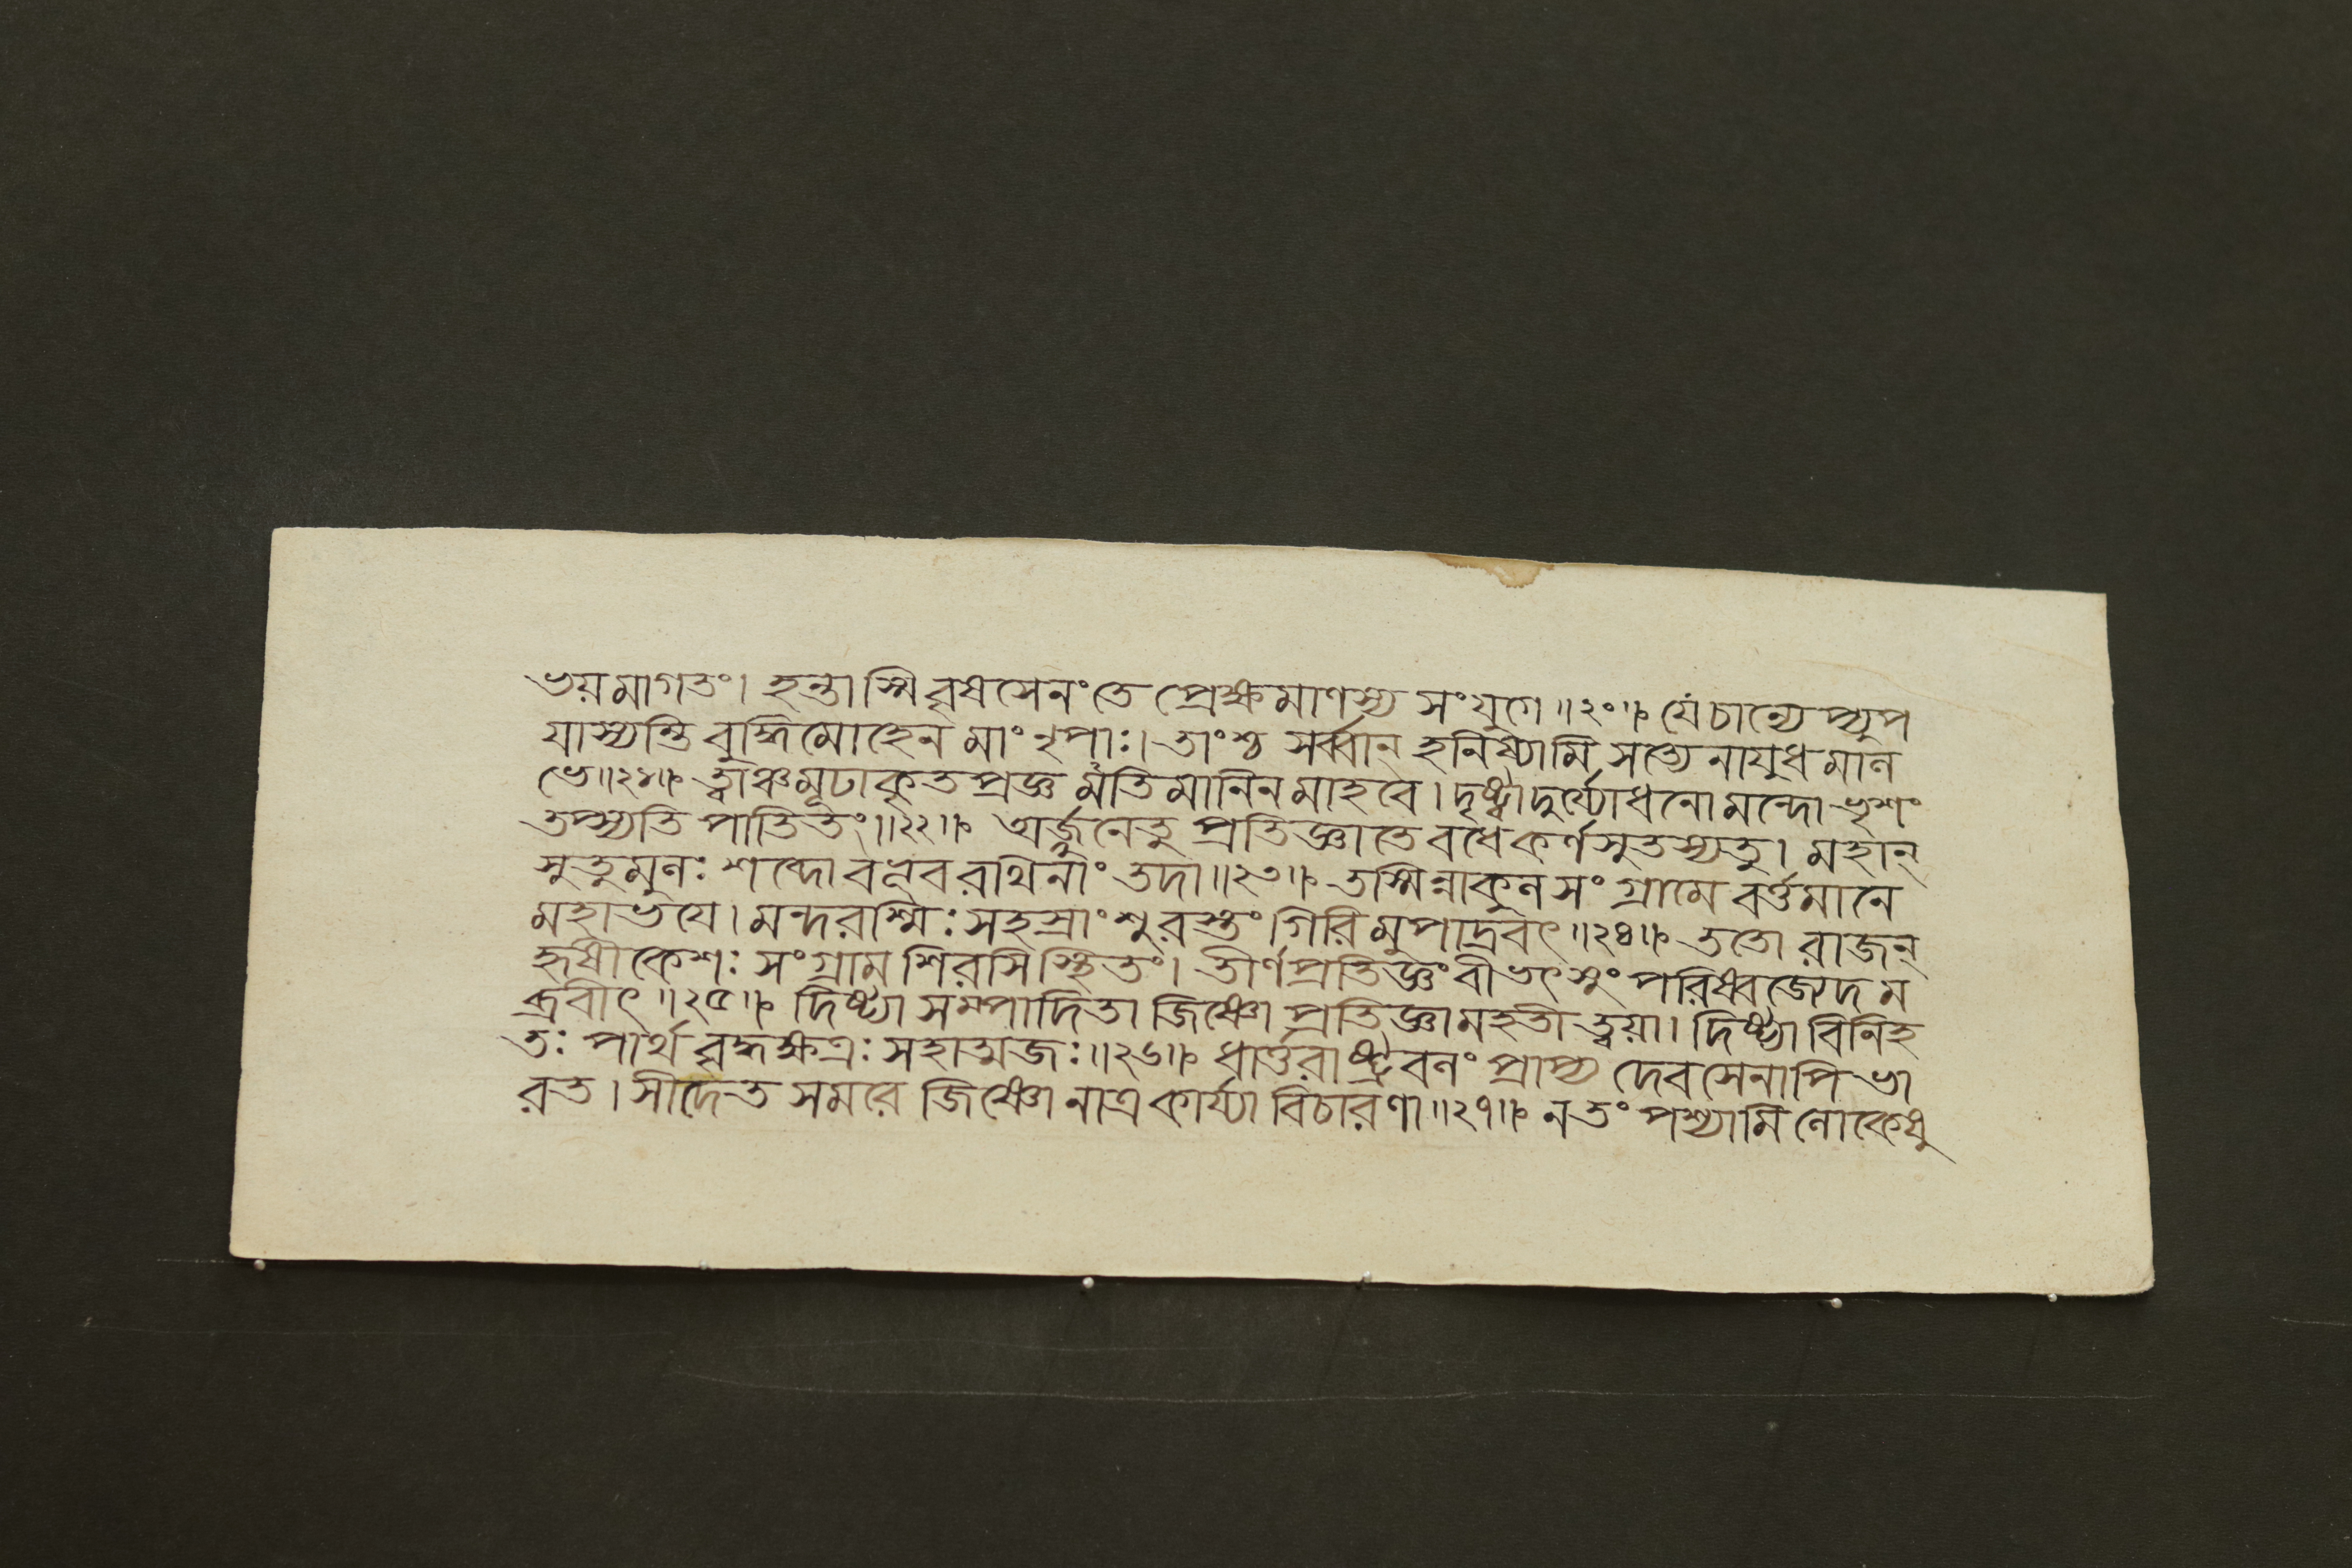 ভয়মাগতং। হন্তাস্মি বৃষসেনং তে প্রেক্ষমাণস্য সংযুগে॥২০॥ যে চান্যেপ্যুপ
যাস্যন্তি বুদ্ধিমোহেন মাং নৃপাঃ। তাংশ্চ সর্ব্বান্ হনিষ্যামি সত্যেনাযুধমাল
ভে॥২১॥ ত্বাঞ্চ মূঢাকৃতপ্রজ্ঞ মতিমানিনমাহবে। দৃষ্ট্বা দুর্য্যোধনো মন্দো ভৃশং
তপ্স্যতি পাতিতং॥২২॥ অর্জুনেতু প্রতিজ্ঞাতে বধে কর্ণসুতস্যতু। মহান্
সুতুমুলঃ শব্দো বভূব রথিনাং তদা॥২৩॥ তস্মিন্নাকুলসংগ্রামে বর্ত্তমানে
মহাভয়ে। মন্দরশ্মিঃ সহস্রাংশুরস্তং গিরিমুপাদ্রবৎ॥২৪॥ ততো রাজন্
হৃষীকেশঃ সংগ্রামশিরসি স্থিতং। তীর্ণপ্রতিজ্ঞং বীভৎসুং পরিষ্বজ্যেদম
ব্রবীৎ॥২৫॥ দিষ্ট্যা সম্পাদিতা জিষ্ণো প্রতিজ্ঞা মহতী ত্বয়া। দিষ্ট্যা বিনিহ
তঃ পার্থ বৃদ্ধক্ষত্রঃ সহাত্মজঃ॥২৬॥ ধার্ত্তরাষ্ট্রবলং প্রাপ্য দেবসেনাপি ভা
রত। সীদেত সমরে জিষ্ণো নাত্র কার্য্যা বিচারণা॥২৭॥ ন তং পশ্যামি লোকেষু